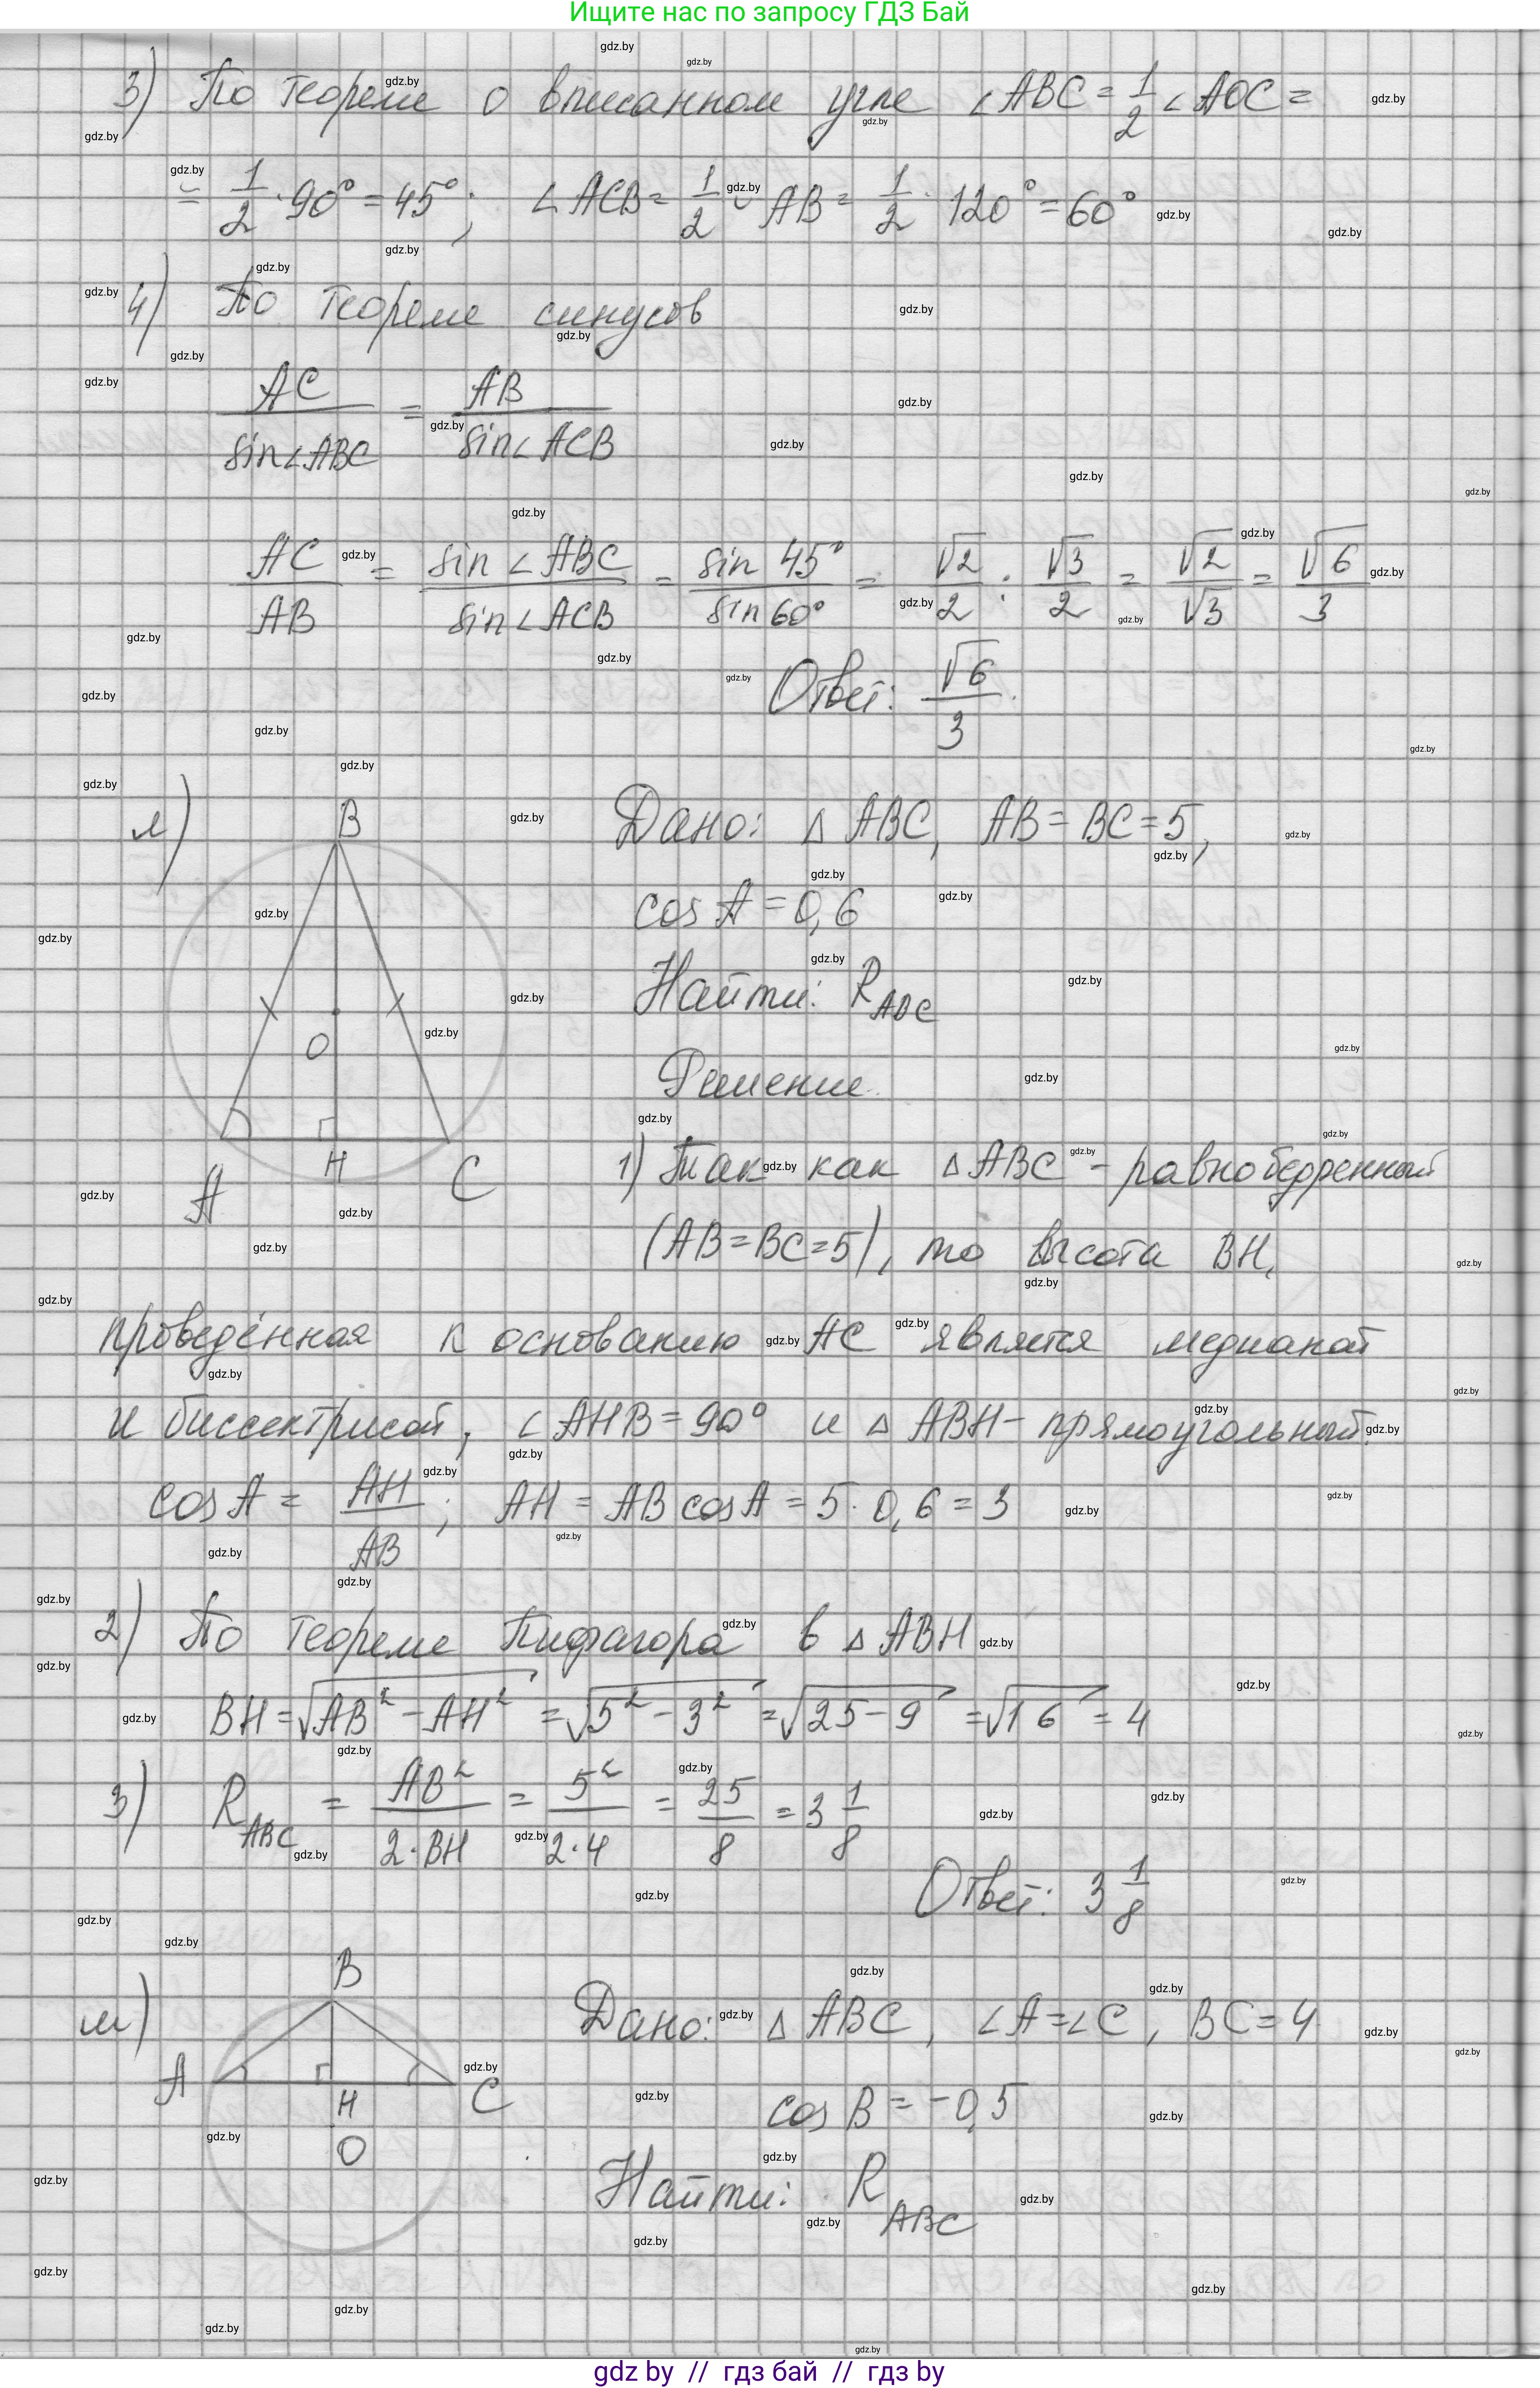 Ищите нас по запросу ГДЗ Бай
3) По теореме о вписанном угле ∠ABC = 1/2 ∠AOC =
= 1/2 · 90° = 45°; ∠ACB = 1/2 ◡ AB = 1/2 · 120° = 60°
4) По теореме синусов
AC/sin∠ABC = AB/sin∠ACB
AC/AB = sin∠ABC/sin∠ACB = sin 45°/sin 60° = √2/2 : √3/2 = √2/√3 = √6/3
Ответ: √6/3.
л) B
O
A H C
Дано: △ ABC, AB = BC = 5,
cos A = 0,6
Найти: R ABC
Решение.
1) Так как △ABC - равнобедренный
(AB = BC = 5), то высота BH,
проведённая к основанию AC является медианой
и биссектрисой, ∠AHB = 90° и △ ABH - прямоугольный.
cos A = AH/AB; AH = AB cos A = 5 · 0,6 = 3
2) По теореме Пифагора в △ ABH
BH = √AB² - AH² = √5² - 3² = √25 - 9 = √16 = 4
3) R ABC = AB²/2·BH = 5²/2·4 = 25/8 = 3 1/8
Ответ: 3 1/8
м) B
A H C
O
Дано: △ ABC, ∠A = ∠C, BC = 4
cos B = -0,5
Найти: R ABC
gdz by // гдз бай // гдз by